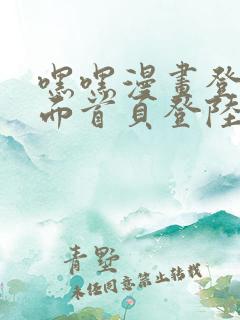 嘿嘿漫畫登
面首頁登陸
青墅
未经同意禁止转载